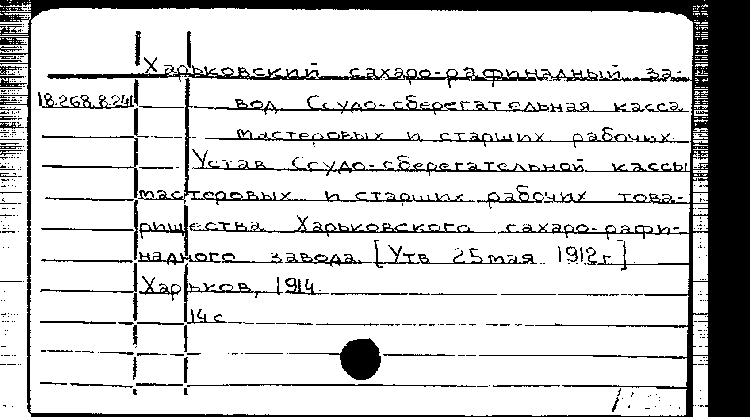 Харьковский сахаро-рафинадный за-
18.268.8.241 вод. Ссудо-сберегательная касса
мастеровых и старших рабочих.
Устав Ссудо-сберегательной кассы
мастеровых и старших рабочих това-
рищества Харьковского сахаро-рафи-
надного завода. [Утв 25 мая 1912г]
Харьков, 1914.
14 с